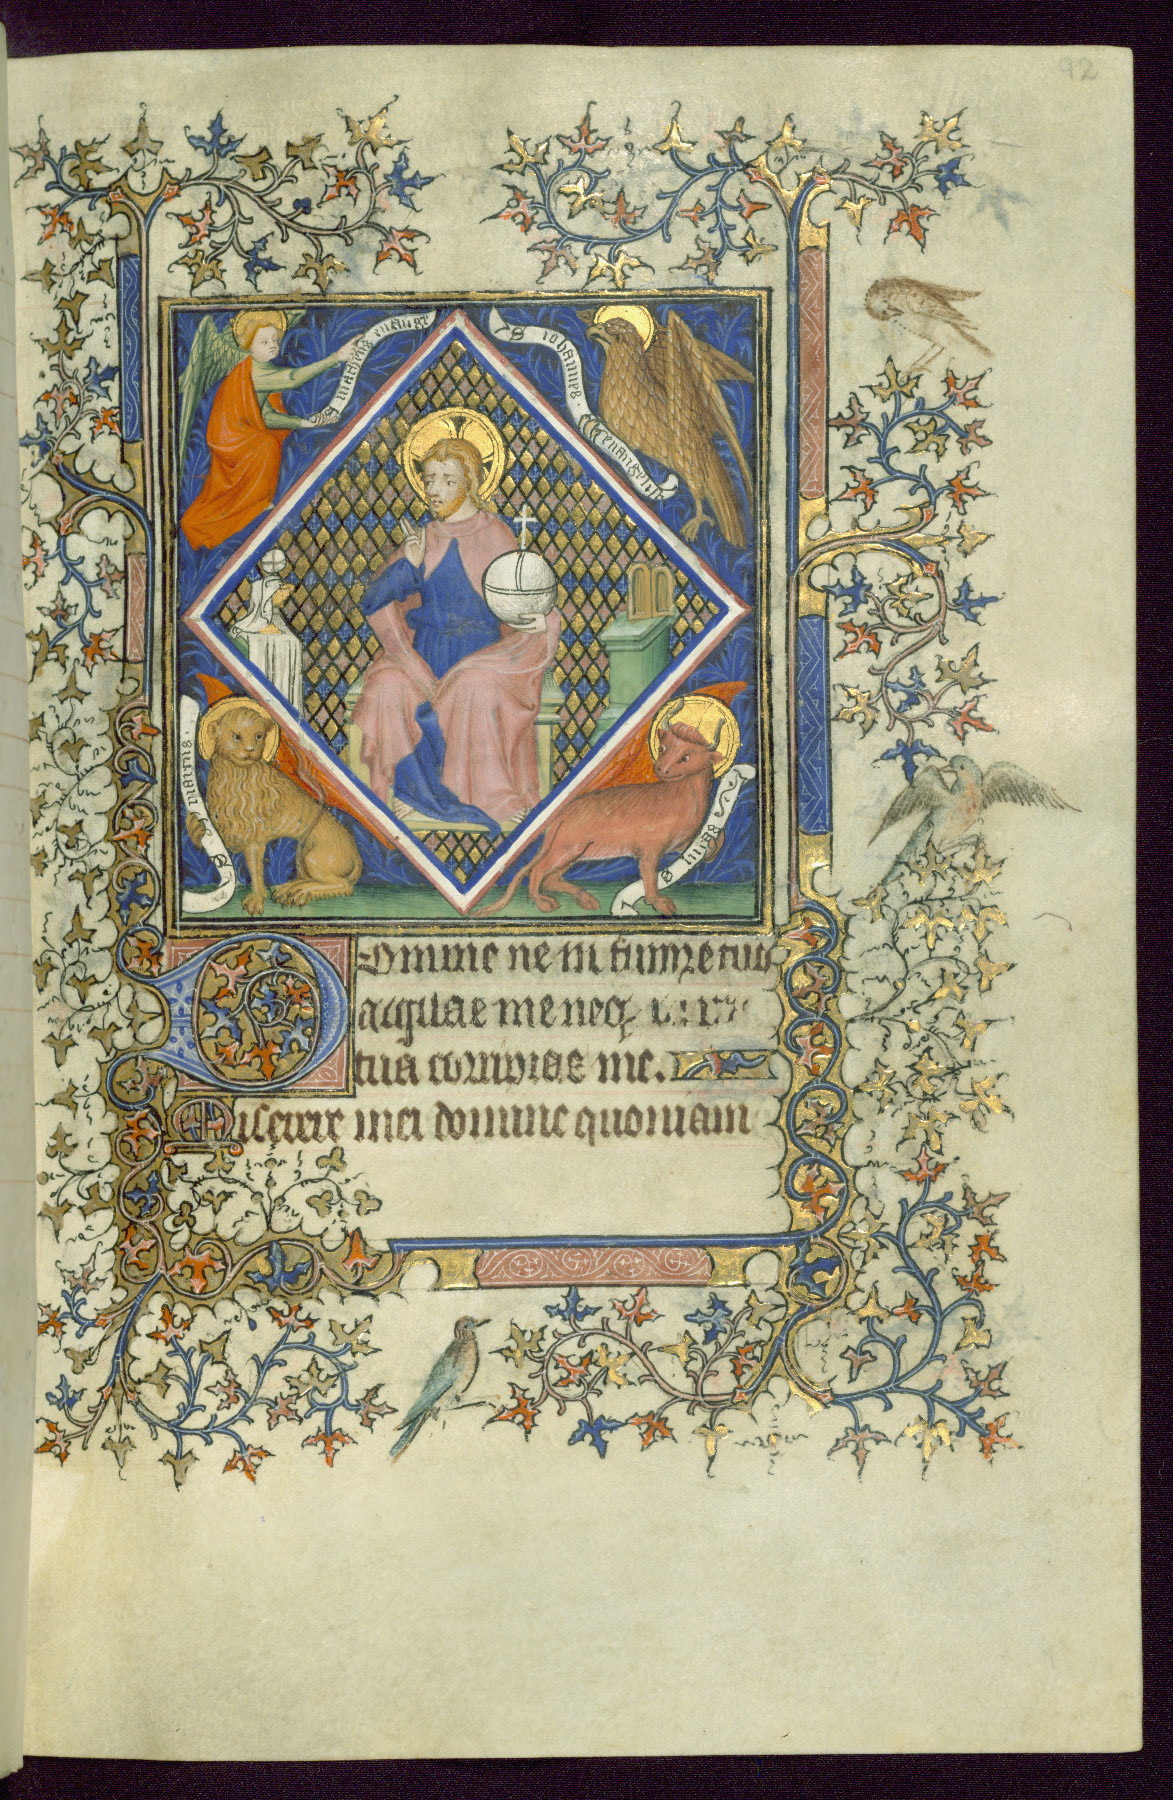 92
S matheus euangl
S iohannes.
euangelista
S marcus.
S lucas
Domine ne in furore tuo
arguas me neq
tua corripias me.
Miserere mei domine quoniam